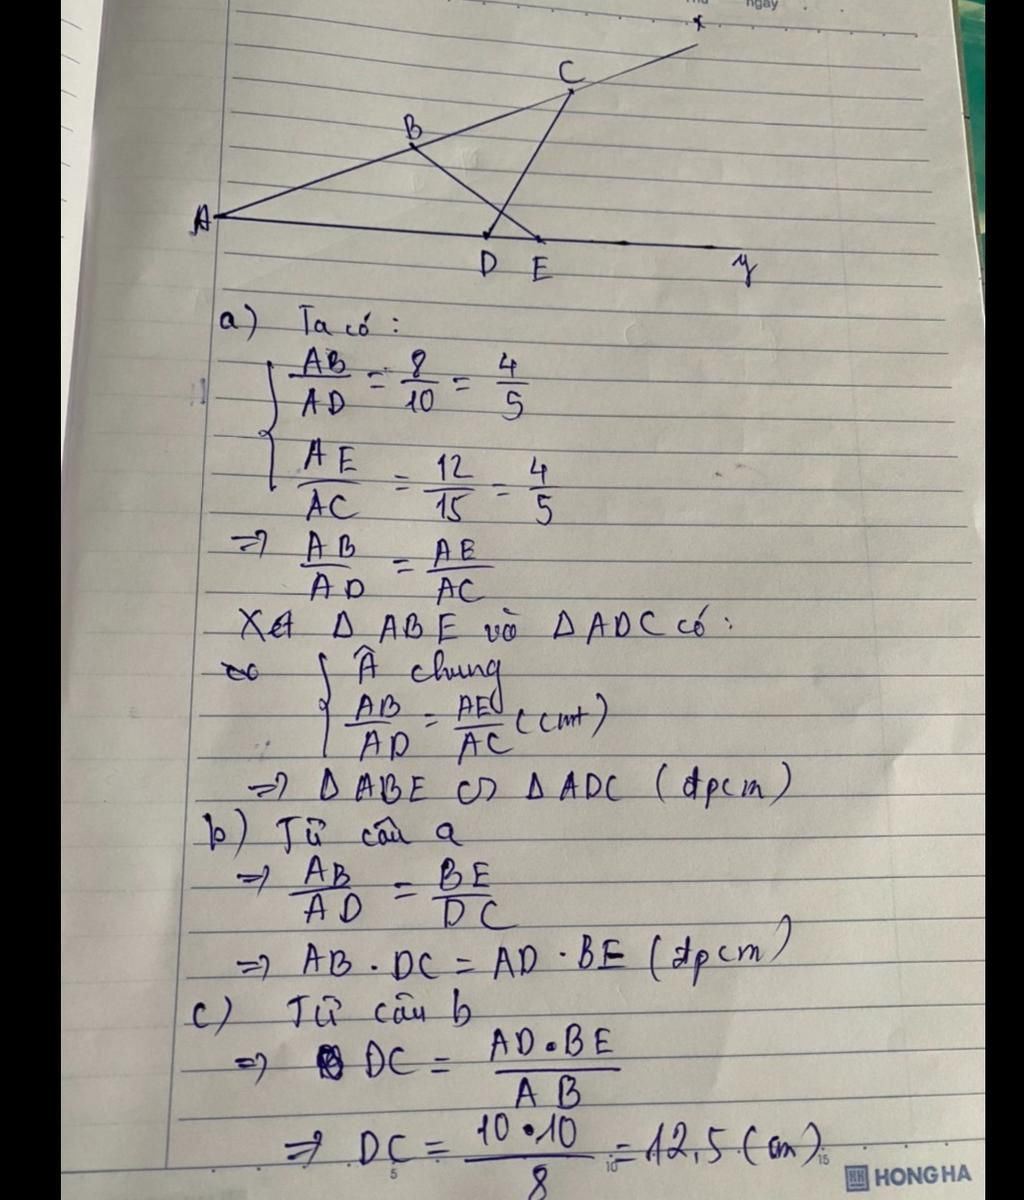 ngày
x
C
B
A
D E y
a) Ta có:
AB/AD = 8/10 = 4/5
AE/AC = 12/15 = 4/5
=> AB/AD = AE/AC
Xét Δ ABE và Δ ADC có:
Â chung
AB/AD = AE/AC (cmt)
=> Δ ABE ∽ Δ ADC (đpcm)
b) Từ câu a
=> AB/AD = BE/DC
=> AB . DC = AD . BE (đpcm)
c) Từ câu b
=> DC = AD.BE/AB
=> DC = 10.10/8 = 12,5 (cm)
5 10 15
HH HONG HA